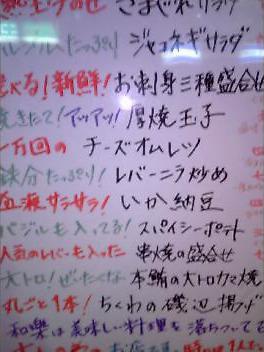 熱玉子のせ さまぐれサラダ
たっぷり ジャコネギサラダ
べる!新鮮!お刺身三種盛合せ
焼きたて!アツアツ!厚焼玉子
一万回の チーズオムレツ
鉄分たっぷり!レバーニラ炒め
血液サラサラ!いか納豆
バジルも入ってる!スパイシーポテト
人気のレバーも入った 串焼の盛合せ
大トロ!ぜいたくな 本鮪の大トロカマ焼
丸ごと1本!ちくわの磯辺揚げ
和楽は美味しい料理を